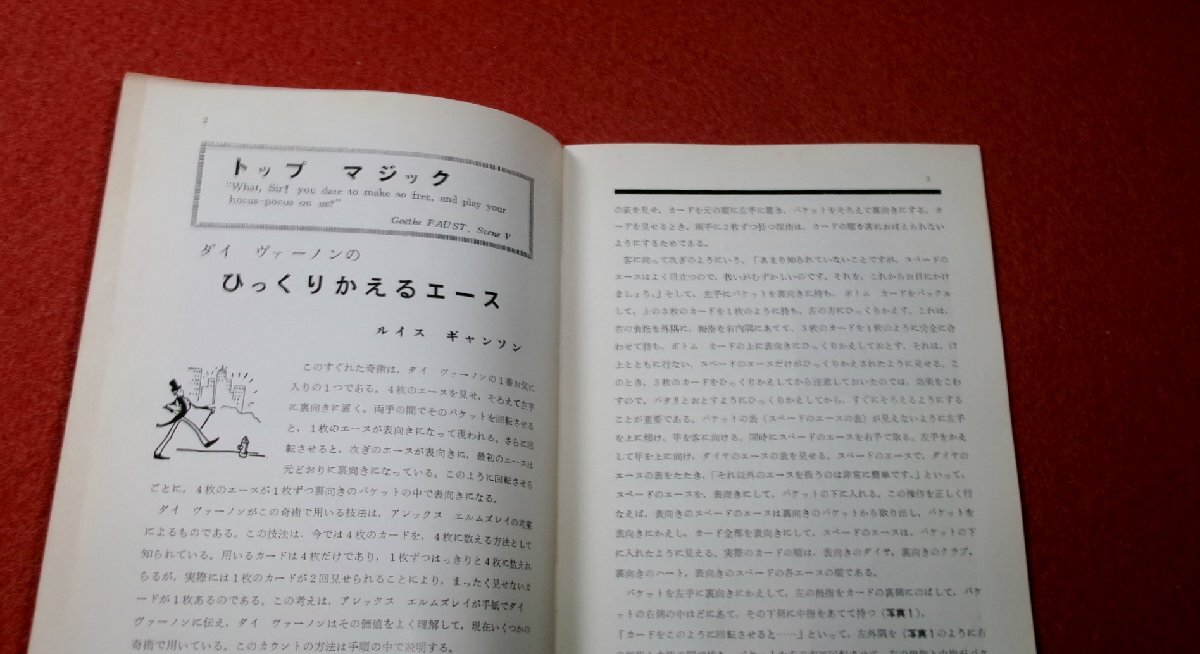 2
トップ マジック
"What, Sir! you dare to make so free, and play your
hocus-pocus on us?"
Goethe FAUST. Scene V
ダイ ヴァーノンの
ひっくりかえるエース
ルイス ギャンソン
このすぐれた奇術は，ダイ ヴァーノンの1番お気に
入りの1つである。4枚のエースを見せ，そろえて左手
に裏向きに置く。両手の間でそのパケットを回転させる
と，1枚のエースが表向きになって現われる。さらに回
転させると，次ぎのエースが表向きに，最初のエースは
元どおりに裏向きになっている。このように回転させる
ごとに，4枚のエースが1枚ずつ裏向きのパケットの中で表向きになる。
ダイ ヴァーノンがこの奇術で用いる技法は，アレックス エルムズレイの考案
によるものである。この技法は、今では4枚のカードを，4枚に数える方法として
知られている。用いるカードは4枚だけであり，1枚ずつはっきりと4枚に数えれ
らるが，実際には1枚のカードが2回見せられることにより，まったく見せないカ
ードが1枚あるのである。この考えは，アレックス エルムズレイが手紙でダイ
ヴァーノンに伝え，ダイ ヴァーノンはその価値をよく理解して，現在いくつかの
奇術で用いている。このカウントの方法は手順の中で説明する。
3
の表を見せ，カードを元の間に左手に置き，パケットをそろえて裏向きにする。カ
ードを見せるとき，両手に2枚ずつ持つ理由は，カードの順を客におぼえられない
ようにするためである。
客に向って次ぎのようにいう。「あまり知られていないことですが，スペードの
エースはよく目立つので，扱いがむずかしいのです。それを，これからお目にかけ
ましょう。」そして，左手にパケットを裏向きに持ち，ボトム カードをバックル
して，上の3枚のカードを1枚のように持ち，左の方にひっくりかえす。これは，
右の食指を外隅に，拇指を右内隅にあてて，3枚のカードを1枚のように完全に合
わせて持ち，ボトム カードの上に表向きにひっくりかえしておとす。それは，口
上とともに行ない，スペードのエースだけがひっくりかえされたように見せる。こ
のとき，3枚のカードをひっくりかえしてから注意しておいたのでは，効果をこわ
すので，パタリとおとすようにひっくりかえしてから，すぐにそろえるようにする
ことが重要である。パケットの表（スペードのエースの表）が見えないように左手
を上に傾け，甲を客に向ける。同時にスペードのエースを右手で取る。左手をかえ
して甲を上に向け，ダイヤのエースの表を見せる。スペードのエースで，ダイヤの
エースの表をたたき，「それ以外のエースを扱うのは非常に簡単です。」といって，
スペードのエースを，表向きにして，パケットの下に入れる。この操作を正しく行
なえば，表向きのスペードのエースは裏向きのパケットから取り出し，パケットを
表向きにかえし，カード全部を表向きにして，スペードのエースは，パケットの下
に入れたように見える。実際のカードの順は，表向きのダイヤ，裏向きのクラブ，
裏向きのハート，表向きのスペードの各エースの順である。
パケットを左手に裏向きにかえして，左の拇指をカードの裏側にのばして，パケ
ットの右側の中ほどにあて，その下側に中指をあてて持つ（写真1）。
「カードをこのように回転させると……」といって，左外隅を（写真1のように右